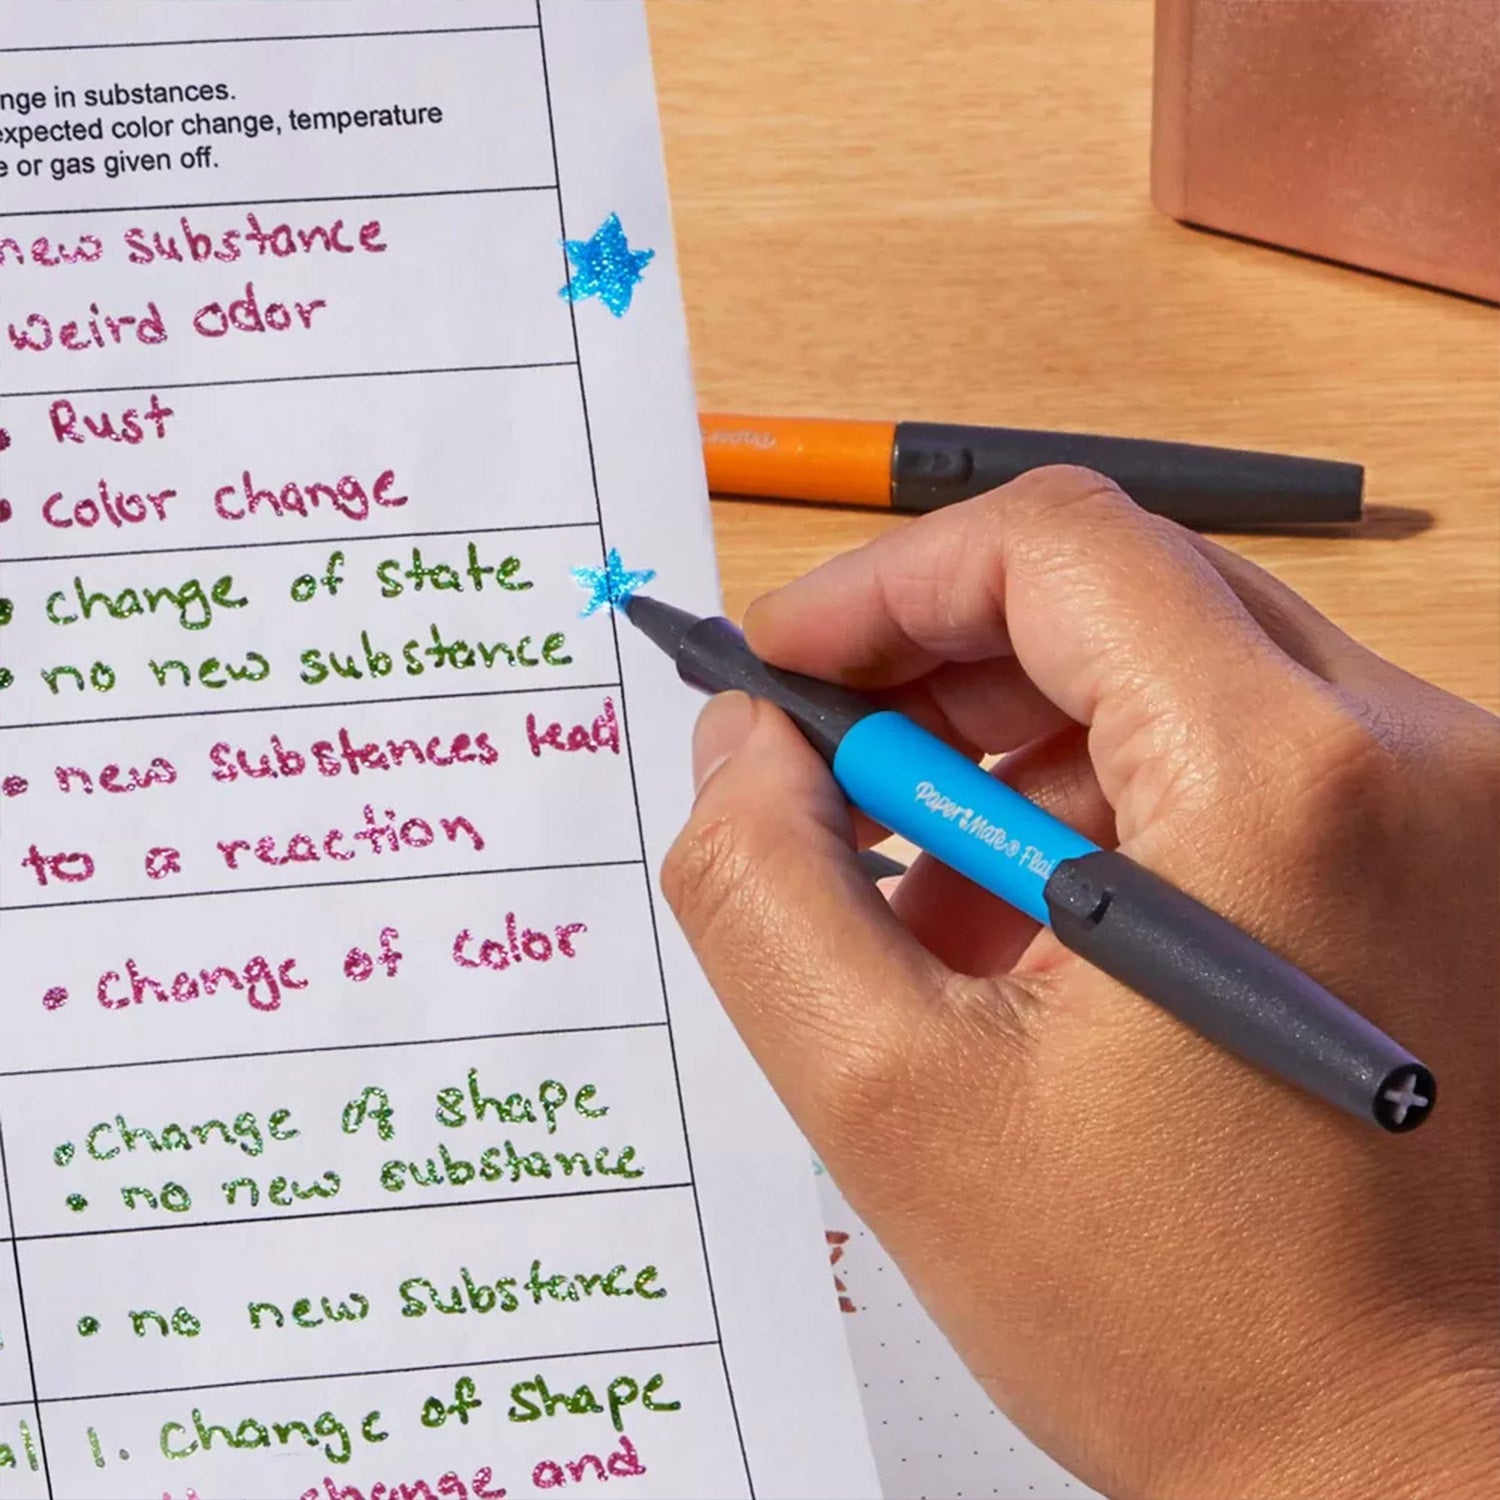 nge in substances.
expected color change, temperature
e or gas given off.
new substance
weird odor
• Rust
• color change
• change of state
• no new substance
• new substances lead
to a reaction
• change of color
• change of shape
• no new substance
• no new substance
al 1. change of shape
change and
Paper Mate® Flai